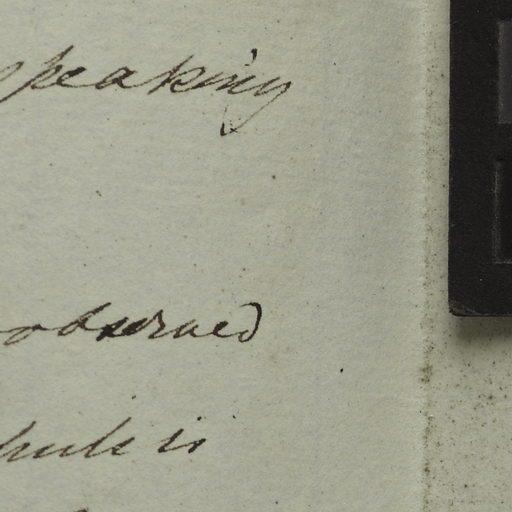 speaking
observed
is